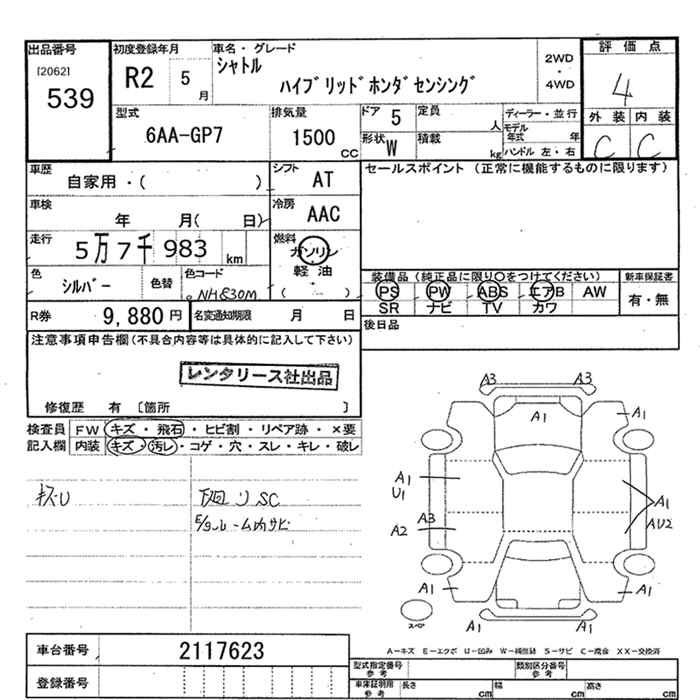 出品番号 初度登録年月 車名・グレード 評価点
[2062] R2 5月 シャトル 2WD・4WD 4
539 ハイブリッドホンダセンシング
型式 排気量 ドア 5 定員 人 ディーラー・並行 外装 内装
6AA-GP7 1500 CC 形状 W 積載 kg モデル年式 年 C C
ハンドル 左・右
車歴 自家用・( ) シフト AT セールスポイント (正常に機能するものに限ります)
車検 年 月( 日) 冷房 AAC
走行 5万7千983 km 燃料 ガソリン
軽油
( )
色 シルバー 色替 色コード NH830M
装備品 (純正品に限り○をつけてください) 新車保証書
PS PW ABS エアB AW 有・無
SR ナビ TV カワ
R券 9,880円 名変通知期限 月 日 後日品
注意事項申告欄 (不具合内容等は具体的に記入して下さい)
レンタリース社出品
修復歴 有 [箇所 ]
検査員 FW キズ・飛石・ヒビ割・リペア跡・×要
記入欄 内装 キズ・汚レ・コゲ・穴・スレ・キレ・破レ
キズU 下廻りSC
E/gルーム内サビ
A3 A3
A1 A1
A1
U1
A3
A2
A1
AU2
A1 A1
A1 A1
スペア
A-キズ E-エクボ U-凹み W-補修跡 S-サビ C-腐食 XX-交換済
車台番号 2117623
登録番号
型式指定番号 参考 類別区分番号 参考
車庫証明用 参考 長さ cm 幅 cm 高さ cm